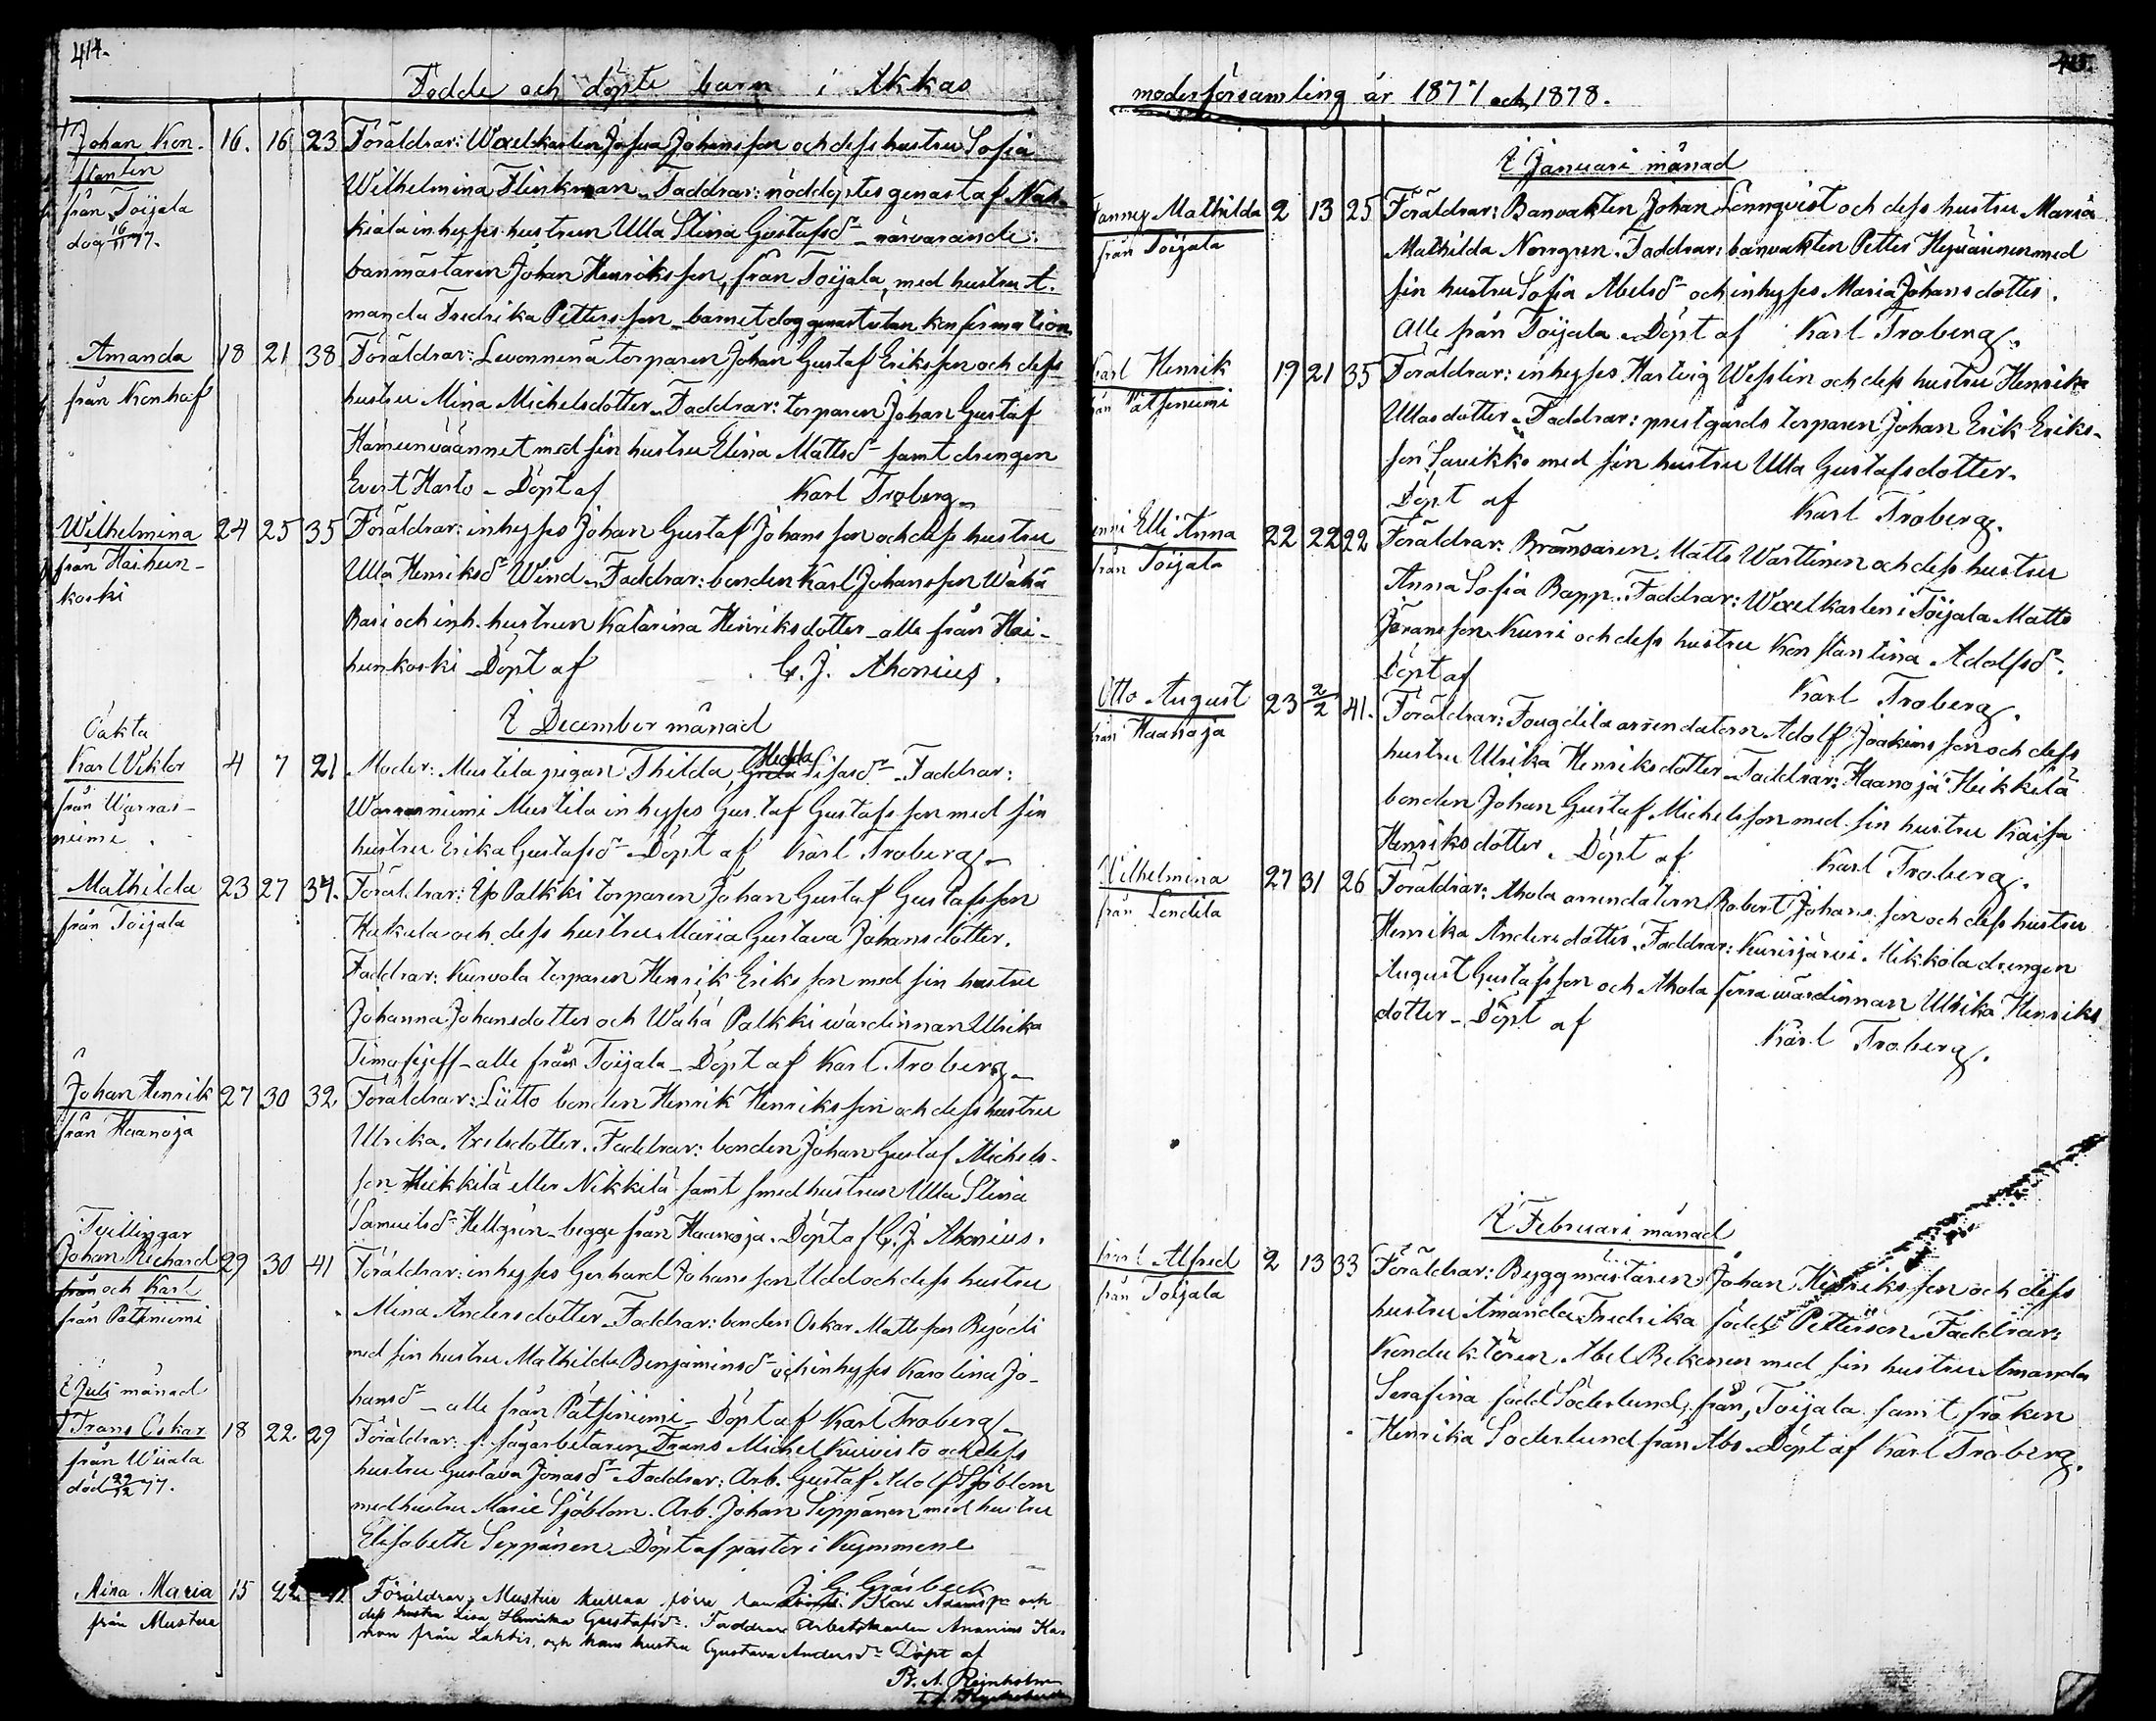 414.
Födde och döpte barn i Akkas
† Johan Kon-
stantin
från Toijala
dog 16/11 77.
16. 16 23
Föräldrar: Wexelkarlen Josua Johansson och dess hustru Sofia
Wilhelmina Flinkman. Faddrar: nöddöptes genast af Nah-
kiala inhyses hustrun Ulla Stina Gustafsdr närvarande:
banmästaren Johan Henriksson, från Toijala, med hustru A-
manda Fredrika Pettersson. barnet dog genast utan konfirmation
Amanda
från Konhof
18 21 38
Föräldrar: Levonnenä torparen Johan Gustaf Eriksson och dess
hustru Mina Michelsdotter. Faddrar: torparen Johan Gustaf
Hämeenväännet med sin hustru Elina Mattsdr samt drengen
Evert Harto - Döpt af Karl Troberg.
Wilhelmina
från Haihun-
koski
24 25 35
Föräldrar: inhyses Johan Gustaf Johansson och dess hustru
Ulla Henriksdr Wind. Faddrar: bonden Karl Johansson Wähä
Rasi och inh. hustrun Katarina Henriksdotter - alle från Hai-
hunkoski Döpt af C. J. Ahonius.
I December månad
Oäkta
Karl Viktor
från Warras-
niemi
4 7 21
Moder: Mustila pigan Thilda, Hedda Greta Lisasdr. Faddrar:
Warrasniemi Mustila inhyses Gustaf Gustafsson med sin
hustru Erika Gustafsdr - Döpt af Karl Troberg.
Mathilda
från Toijala
23 27 37.
Föräldrar: Iso Palkki torparen Johan Gustaf Gustafsson
Hakula och dess hustru Maria Gustava Johansdotter.
Faddrar: Kurvola torparen Henrik Eriksson med sin hustru
Johanna Johansdotter och Wähä Palkki wärdinnan Ulrika
Timofejeff - alle från Toijala - Döpt af Karl Troberg -
Johan Henrik
från Haanoja
27 30 32.
Föräldrar: Lütto bonden Henrik Henriksson och dess hustru
Ulrika Axelsdotter. Faddrar: bonden Johan Gustaf Michels-
son Heikkilä eller Nikkilä samt smedhustrun Ulla Stina
Samuelsdr Hellgren - begge från Haanoja. Döpt af C. J. Ahonius.
Tvillingar
Johan Richard
från och Karl
från Pätsiniemi
29 30 41
Föräldrar: inhyses Gerhard Johansson Udd och dess hustru
Mina Andersdotter. Faddrar: bonden Oskar Mattsson Rejodi
med sin hustru Mathilda Benjaminsdr och inhyses Karolina Jo-
hansdr - alle från Pätsiniemi - Döpt af Karl Troberg
I Juli månad
† Frans Oskar
från Wiiala
död 22/12 77.
18 22. 29
Föräldrar: f. sågarbetaren Frans Michel Kuivisto och dess
hustru Gustava Jonasdr. Faddrar: Arb. Gustaf Adolf Sjöblom
med hustru Marie Sjöblom. Arb. Johan Seppänen med hustru
Elisabeth Seppänen. Döpt af pastor i Kymmene
J. G. Gråsbeck
Aina Maria
från Mustue
15 22
Föräldrar: Mustue Kullaa förre Karl Adamsson och
dess hustru Lisa Henrika Gustafsdr. Faddrar Arbetskarlen Ananias Ka-
från Lahtis, och hans hustru Gustava Andersdr Döpt af
B. A. Reinholm
415.
moderförsamling år 1877 och 1878.
I Januari månad
Fanny Mathilda
från Toijala
2 13 25
Föräldrar: Banvakten Johan Lönnqvist och dess hustru Maria
Mathilda Norrgren. Faddrar: banvakten Petter Hyväinen med
sin hustru Sofia Abelsdr och inhyses Maria Johansdotter.
Alle från Toijala. Döpt af Karl Troberg.
Karl Henrik
från Pätsiniemi
19 21 35
Föräldrar: inhyses Hartvig Wesslin och dess hustru Henrika
Ullasdotter. Faddrar: prestgårds torparen Johan Erik Eriks-
son Savikko med sin hustru Ulla Gustafsdotter.
Döpt af Karl Troberg.
Jenni Elli Anna
från Toijala
22 22 22
Föräldrar: Bromsaren Matts Warttinen och dess hustru
Anna Sofia Rapp. Faddrar: Wexelkarlen i Toijala Matts
Göransson Kurri och dess hustru Konstantina Adolfsdr.
Döpt af Karl Troberg.
Otto August
från Haanoja
23 2/2 41.
Föräldrar: Fougdila arrendatorn Adolf Joakimsson och dess
hustru Ulrika Henriksdotter. Faddrar: Haanoja Heikkilä
bonden Johan Gustaf Michelsson med sin hustru Kaisa
Henriksdotter. Döpt af Karl Troberg.
Wilhelmina
från Sondila
27 31 26
Föräldrar: Ahola arrendatorn Robert Johansson och dess hustru
Henrika Andersdotter. Faddrar: Kurisjärvi Mikkola drengen
August Gustafsson och Ahola förra wärdinnan Ulrika Henriks
dotter - Döpt af Karl Troberg.
I Februari månad
Karl Alfred
från Toijala
2 13 33
Föräldrar: Byggmästaren Johan Henriksson och dess
hustru Amanda Fredrika född Petterson. Faddrar:
Konduktören Abel Rekonen med sin hustru Amanda
Serafina född Söderlund, från Toijala samt fröken
Henrika Söderlund från Åbo. Döpt af Karl Troberg.